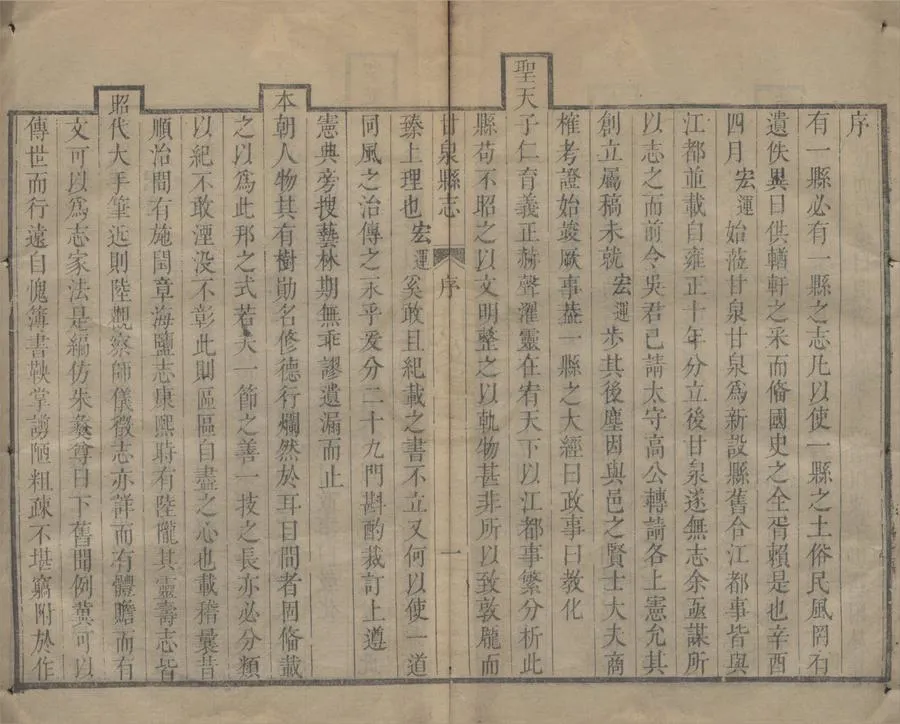 序
有一縣必有一縣之志凡以使一縣之土俗民風罔有
遺佚異日供輶軒之采而俻國史之全胥賴是也辛酉
四月宏運始蒞甘泉甘泉爲新設縣舊合江都事皆與
江都並載自雍正十年分立後甘泉遂無志余亟謀所
以志之而前令吳君已請太守高公轉請各上憲允其
創立屬稿未就宏運歩其後塵因與邑之賢士大夫商
榷考證始竣厥事葢一縣之大經曰政事曰教化
聖天子仁育義正赫聲濯靈在宥天下以江都事繁分析此
縣苟不昭之以文明整之以軌物甚非所以致敦龎而
甘泉縣志 序 一
臻上理也宏運奚敢且紀載之書不立又何以使一道
同風之治傳之永乎爰分二十九門斟酌裁訂上遵
憲典旁搜藝林期無乖謬遺漏而止
本朝人物其有樹勛名修德行爛然於耳目間者固俻載
之以爲此邦之式若夫一節之善一技之長亦必分類
以紀不敢湮没不彰此則區區自盡之心也載稽曩昔
順治間有施閏章海鹽志康熙時有陸隴其靈壽志皆
昭代大手筆近則陸觀察師儀徵志亦詳而有體贍而有
文可以爲志家法是編仿朱彝尊日下舊聞例冀可以
傳世而行遠自愧簿書鞅掌謭陋粗疎不堪竊附於作